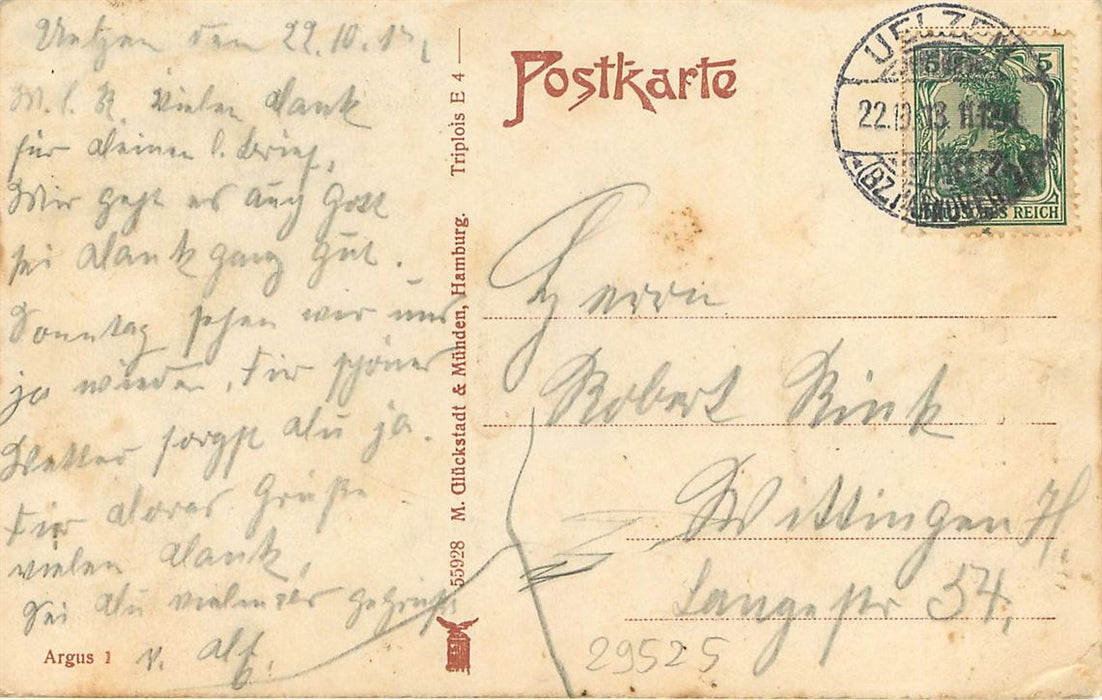 Uelzen den 22.10.13
M. l. R. Vielen Dank
für Deinen l. Brief,
Mir geht es auch Gott
sei Dank ganz gut.
Sonntag sehen wir uns
ja wieder. Für schönes
Wetter sorgst Du ja.
Für Doras Grüße
vielen Dank,
Sei Du vielmals gegrüßt
v.
Argus 1
55928 M. Glückstadt & Münden, Hamburg. Triplois E 4
Postkarte
UELZEN
22.10.13. 11-12
(BZ. HANNOVER)
5 5
DEUTSCHES REICH
Herrn
Robert Rink
Wittingen H.
Langestr 54.
29525